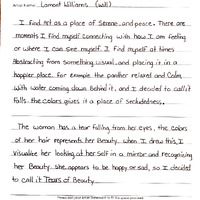 Artist Name: Lamont Williams (Will)
I find Art as a place of Serene and peace. There are
moments I find myself connecting with how I am feeling
or where I can see myself. I find myself at times
Abstracting from something usual and placing it in a
happier place. For example the panther relaxed and Calm
with water coming down Behind it, and I decided to call it
Falls. the colors gives it a place of secludedness.
The woman has a tear falling from her eyes, the colors
of her hair represents her Beauty. when I drew this, I
visualize her looking at her self in a mirror and recognizing
her Beauty. she appears to be happy or sad, so I decided
to call it Tears of Beauty.